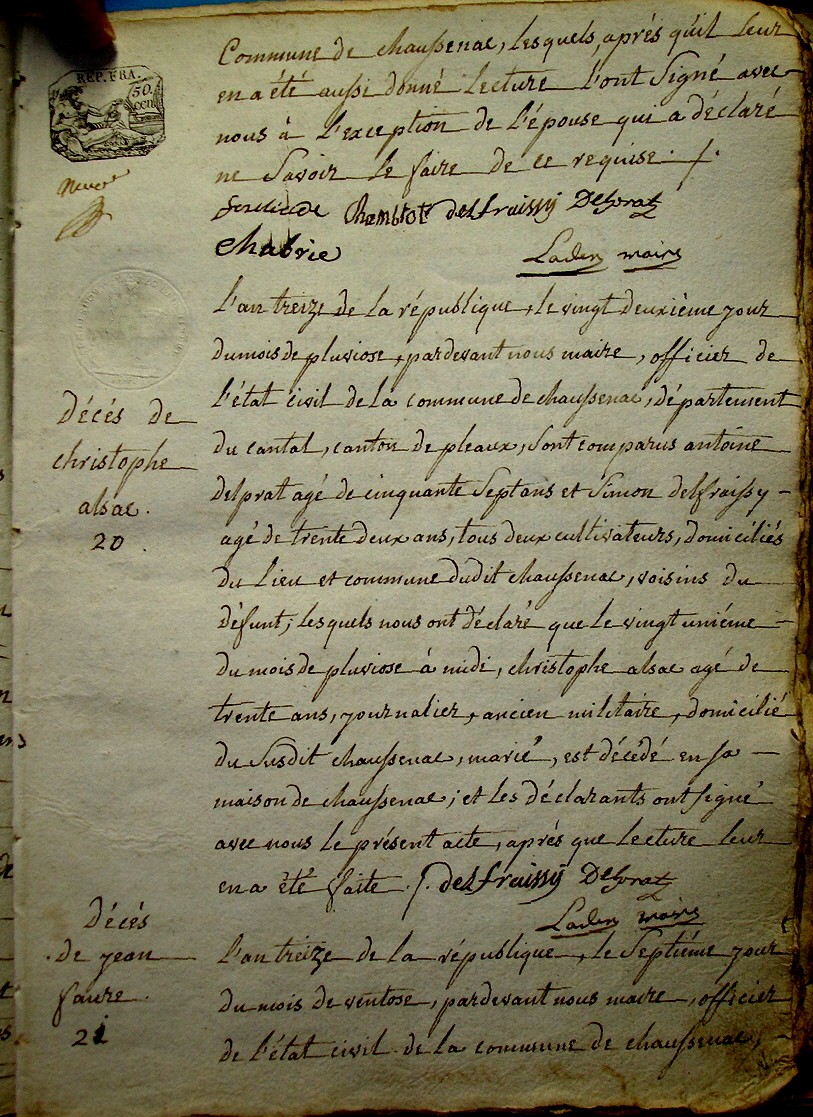 REP. FRA.
50.
cen.
Commune de chaussenac, lesquels, aprés qu'il leur
en a été aussi donné lecture l'ont signé avec
nous à l'exception de l'épouse qui a déclaré
ne savoir le faire de ce requise ./.
Rambtot delfraissy Delprat
Chabrie
Lader maire
l'an treize de la république, le vingt deuxième jour
du mois de pluviose, pardevant nous maire, officier de
l'état civil de la commune de chaussenac, département
du cantal, canton de pleaux, sont comparus antoine
delprat agé de cinquante sept ans et simon delfraissy
agé de trente deux ans, tous deux cultivateurs, domiciliés
du lieu et commune dudit chaussenac, voisins du
défunt; lesquels nous ont déclaré que le vingt uniéme
du mois de pluviose à midi, christophe alsac agé de
trente ans, journalier, ancien militaire, domicilié
du susdit chaussenac, marié, est décédé en sa
maison de chaussenac; et les déclarants ont signé
avec nous le présent acte, aprés que lecture leur
en a été faite ./. delfraissy Delprat
Lader maire
Décés de
christophe
alsac.
20.
l'an treize de la république, le septiéme jour
du mois de ventose, pardevant nous maire, officier
de l'état civil de la commune de chaussenac,
Décés
de jean
faure.
21